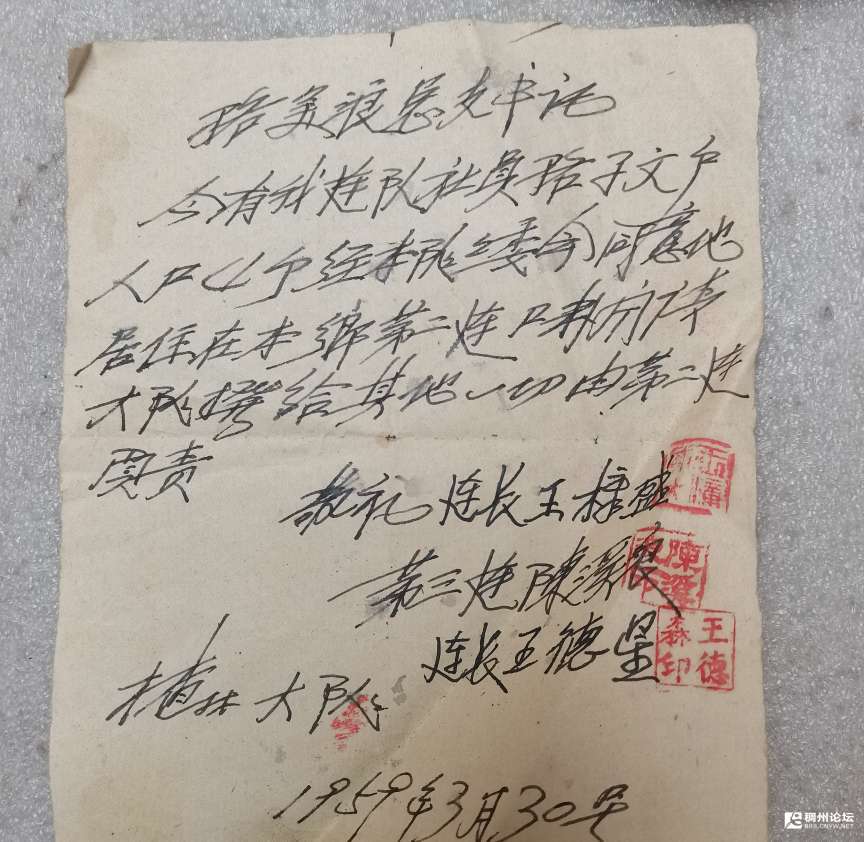 骆美浪总支书记
今有我连队社员骆子文户
人口4个经本队委会同意他
居住在本乡第二连口粮
大队拨给其他一切由第二连
负责
敬礼 连长王樟
第三连陳溪
连长王德星
植林大队
1959年3月30号
王德森印
稠州论坛
BBS.CNYW.NET